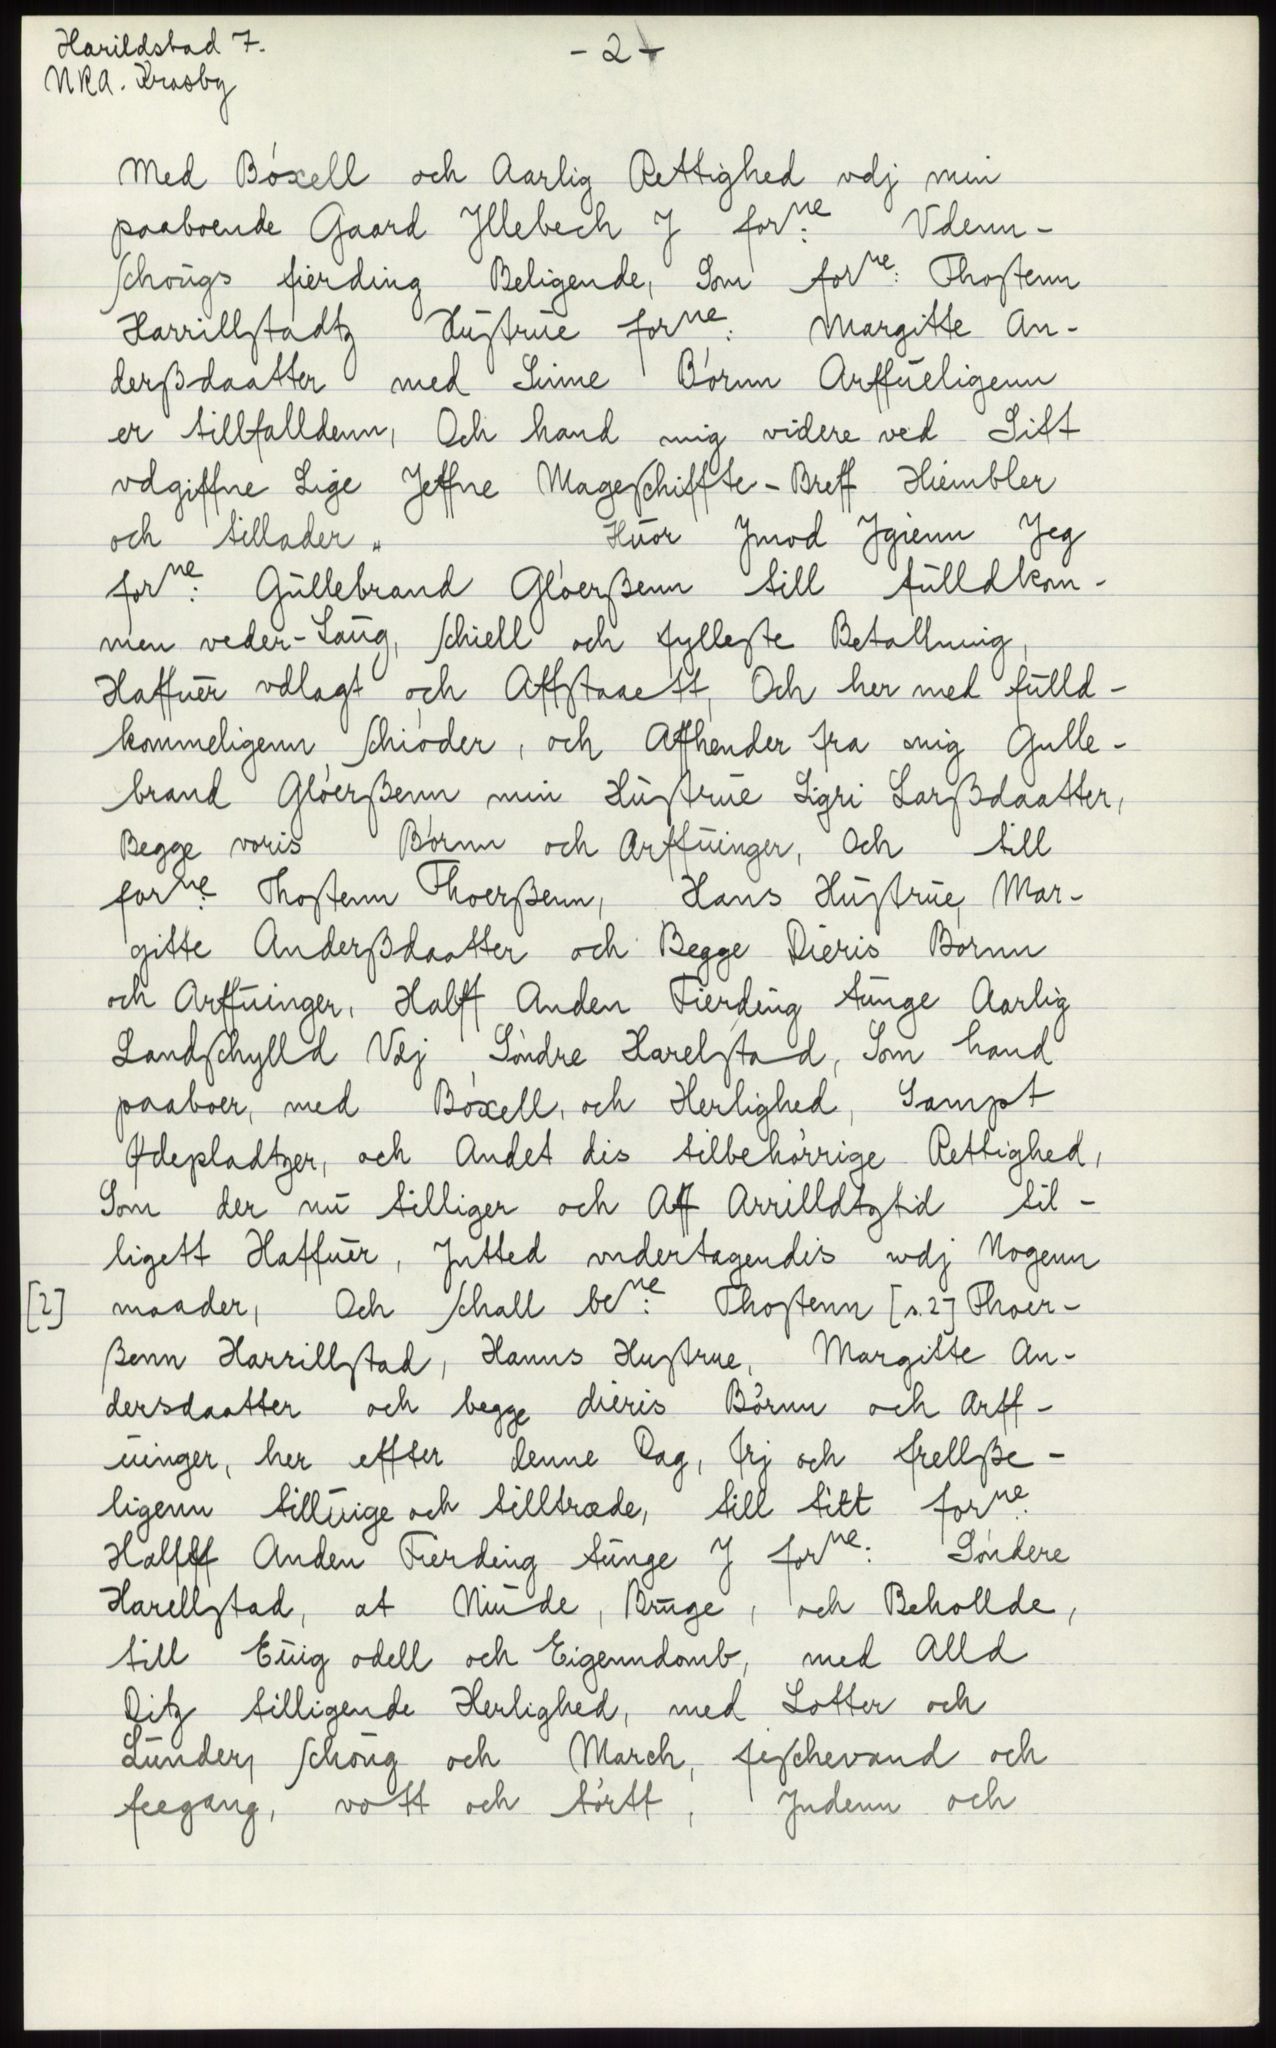 Harildstad 7.
- 2 -
NRA. Krasby
Med Bóxell och Aarlig Rettighed vdj min
paaboende Gaard Jllebech J forne: Vdenn-
schougs fierding Beligende, Som forne: Thostenn
Harrillstadtz Hustrue forne: Margitte An-
derßdaatter med Sinne Bórnn Arffueligenn
er tillfalldenn, Och hand mig videre ved Sitt
vdgiffne Lige Jeffne Mageschiffte-Breff Hiembler
och tillader„ Huor Jmod Jgienn Jeg
forne: Gullebrand Glóerßenn till fulldkom-
men veder-Laug, schiell och fylleste Betallning,
Haffuer vdlagt och Affstaaett, Och her med fulld-
kommeligenn schióder, och Affhender fra mig Gulle-
brand Glóerßenn min Hustrue Sigri Larßdaatter,
Begge voris Bórnn och Arffuinger, Och till
forne: Thostenn Thoerßenn, Hans Hustrue, Mar-
gitte Anderßdaatter och Begge Dieris Bórnn
och Arffuinger, Halff Anden Fierding tunge Aarlig
Landschylld Vdj Sóndre Harelstad, Som hand
paaboer, med Bóxell, och Herlighed, Sampt
Ødepladtzer, och Andet dis tilbehórrige Rettighed,
Som der nu tilliger och Aff Arrilldtztid til-
ligett Haffuer, Jntted vndertagendis wdj Nogenn
[2] maader, Och schall bene: Thostenn [s.2] Thoer-
ßenn Harrillstad, Hanns Hustrue, Margitte An-
dersdaatter och begge dieris Børnn och Arff-
uinger, her effter denne Dag, frj och frellße-
ligenn tilluige och tilltræde, till titt forne:
Halfff Anden Fierding tunge J forne: Sóndere
Harellstad, at Niude, Bruge, och Behollde,
till Euig odell och Eigenndomb, med Alld
Ditz tilligende Herlighed, med Lotter och
Lunder, schoug och March, fischevand och
feegang, vott och tórtt, Jndenn och